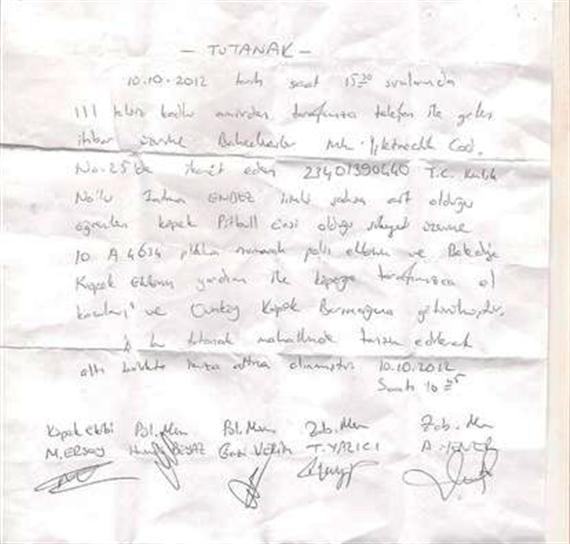 - TUTANAK -
10.10.2012 tarih saat 15 30 sıralarında
111 telsiz kodlu amirden tarafımıza telefon ile gelen
ihbar üzerine Bahçelievler Mh. Cad.
No:25'de ikamet eden 23401390440 T.C. Kimlik
No'lu ENDEZ isimli şahsa ait olduğu
öğrenilen köpek Pitbull cinsi olduğu şikayet üzerine
10 A 4634 plaka numaralı polis ekibinin ve Belediye
Köpek Ekibinin yardımı ile köpeğe tarafımızca el
ve Köpek Barınağına götürülmüştür.
İş bu tutanak mahallinde tanzim edilerek
altı birlikte imza altına alınmıştır 10.10.2012
Saat: 16
Köpek ekibi Pol. Mem Pol. Mem Zab. Mem Zab. Mem
M. ERSOY BEYAZ T. YAZICI A.